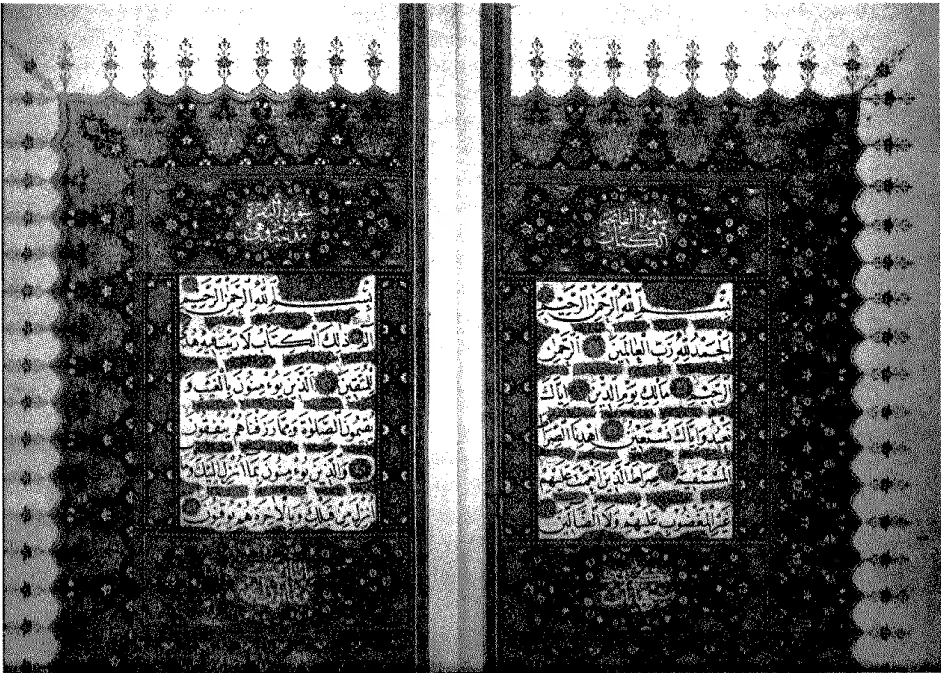 سورة الفاتحة
الكتاب
بِسْمِ اللهِ الرَّحْمٰنِ الرَّحِيمِ
اَلْحَمْدُ لِلّٰهِ رَبِّ الْعَالَمِينَ اَلرَّحْمٰنِ
الرَّحِيمِ مَالِكِ يَوْمِ الدِّينِ اِيَّاكَ
نَعْبُدُ وَاِيَّاكَ نَسْتَعِينُ اِهْدِنَا الصِّرَاطَ
الْمُسْتَقِيمَ صِرَاطَ الَّذِينَ اَنْعَمْتَ عَلَيْهِمْ
غَيْرِ الْمَغْضُوبِ عَلَيْهِمْ وَلَا الضَّالِّينَ
سورة البقرة
بِسْمِ اللهِ الرَّحْمٰنِ الرَّحِيمِ
الم ذٰلِكَ الْكِتَابُ لَا رَيْبَ فِيهِ هُدًى
لِلْمُتَّقِينَ اَلَّذِينَ يُؤْمِنُونَ بِالْغَيْبِ وَ
يُقِيمُونَ الصَّلٰوةَ وَمِمَّا رَزَقْنَاهُمْ يُنْفِقُونَ
وَالَّذِينَ يُؤْمِنُونَ بِمَا اُنْزِلَ اِلَيْكَ وَمَا
اُنْزِلَ مِنْ قَبْلِكَ وَبِالْاٰخِرَةِ هُمْ يُوقِنُونَ